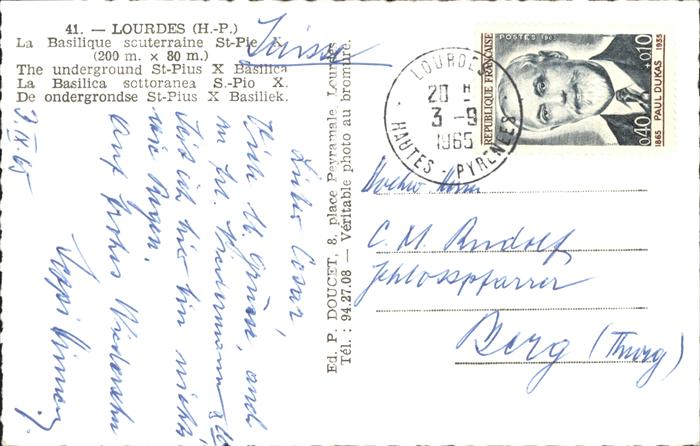 41. — LOURDES (H.-P.)
La Basilique souterraine St-Pie X
(200 m. × 80 m.)
The underground St-Pius X Basilica
La Basilica sottoranea S.-Pio X.
De ondergrondse St-Pius X Basiliek.
Suisse
Ed. P. DOUCET, 8, place Peyramale, Lourdes
Tél. : 94.27.08 — Véritable photo au bromure.
POSTES 1965
REPUBLIQUE FRANÇAISE
0,40 +0,10
1865 PAUL DUKAS 1935
LOURDES
20 H
3 - 9
1965
HAUTES-PYRENEES
3. IX 65
Lieber Cäsar,
Dich zu grüssen, und
dass ich hier bin
auf frohes Wiedersehn
C. M. Rudolf
Schlosspfarrer
Berg (Thurg)